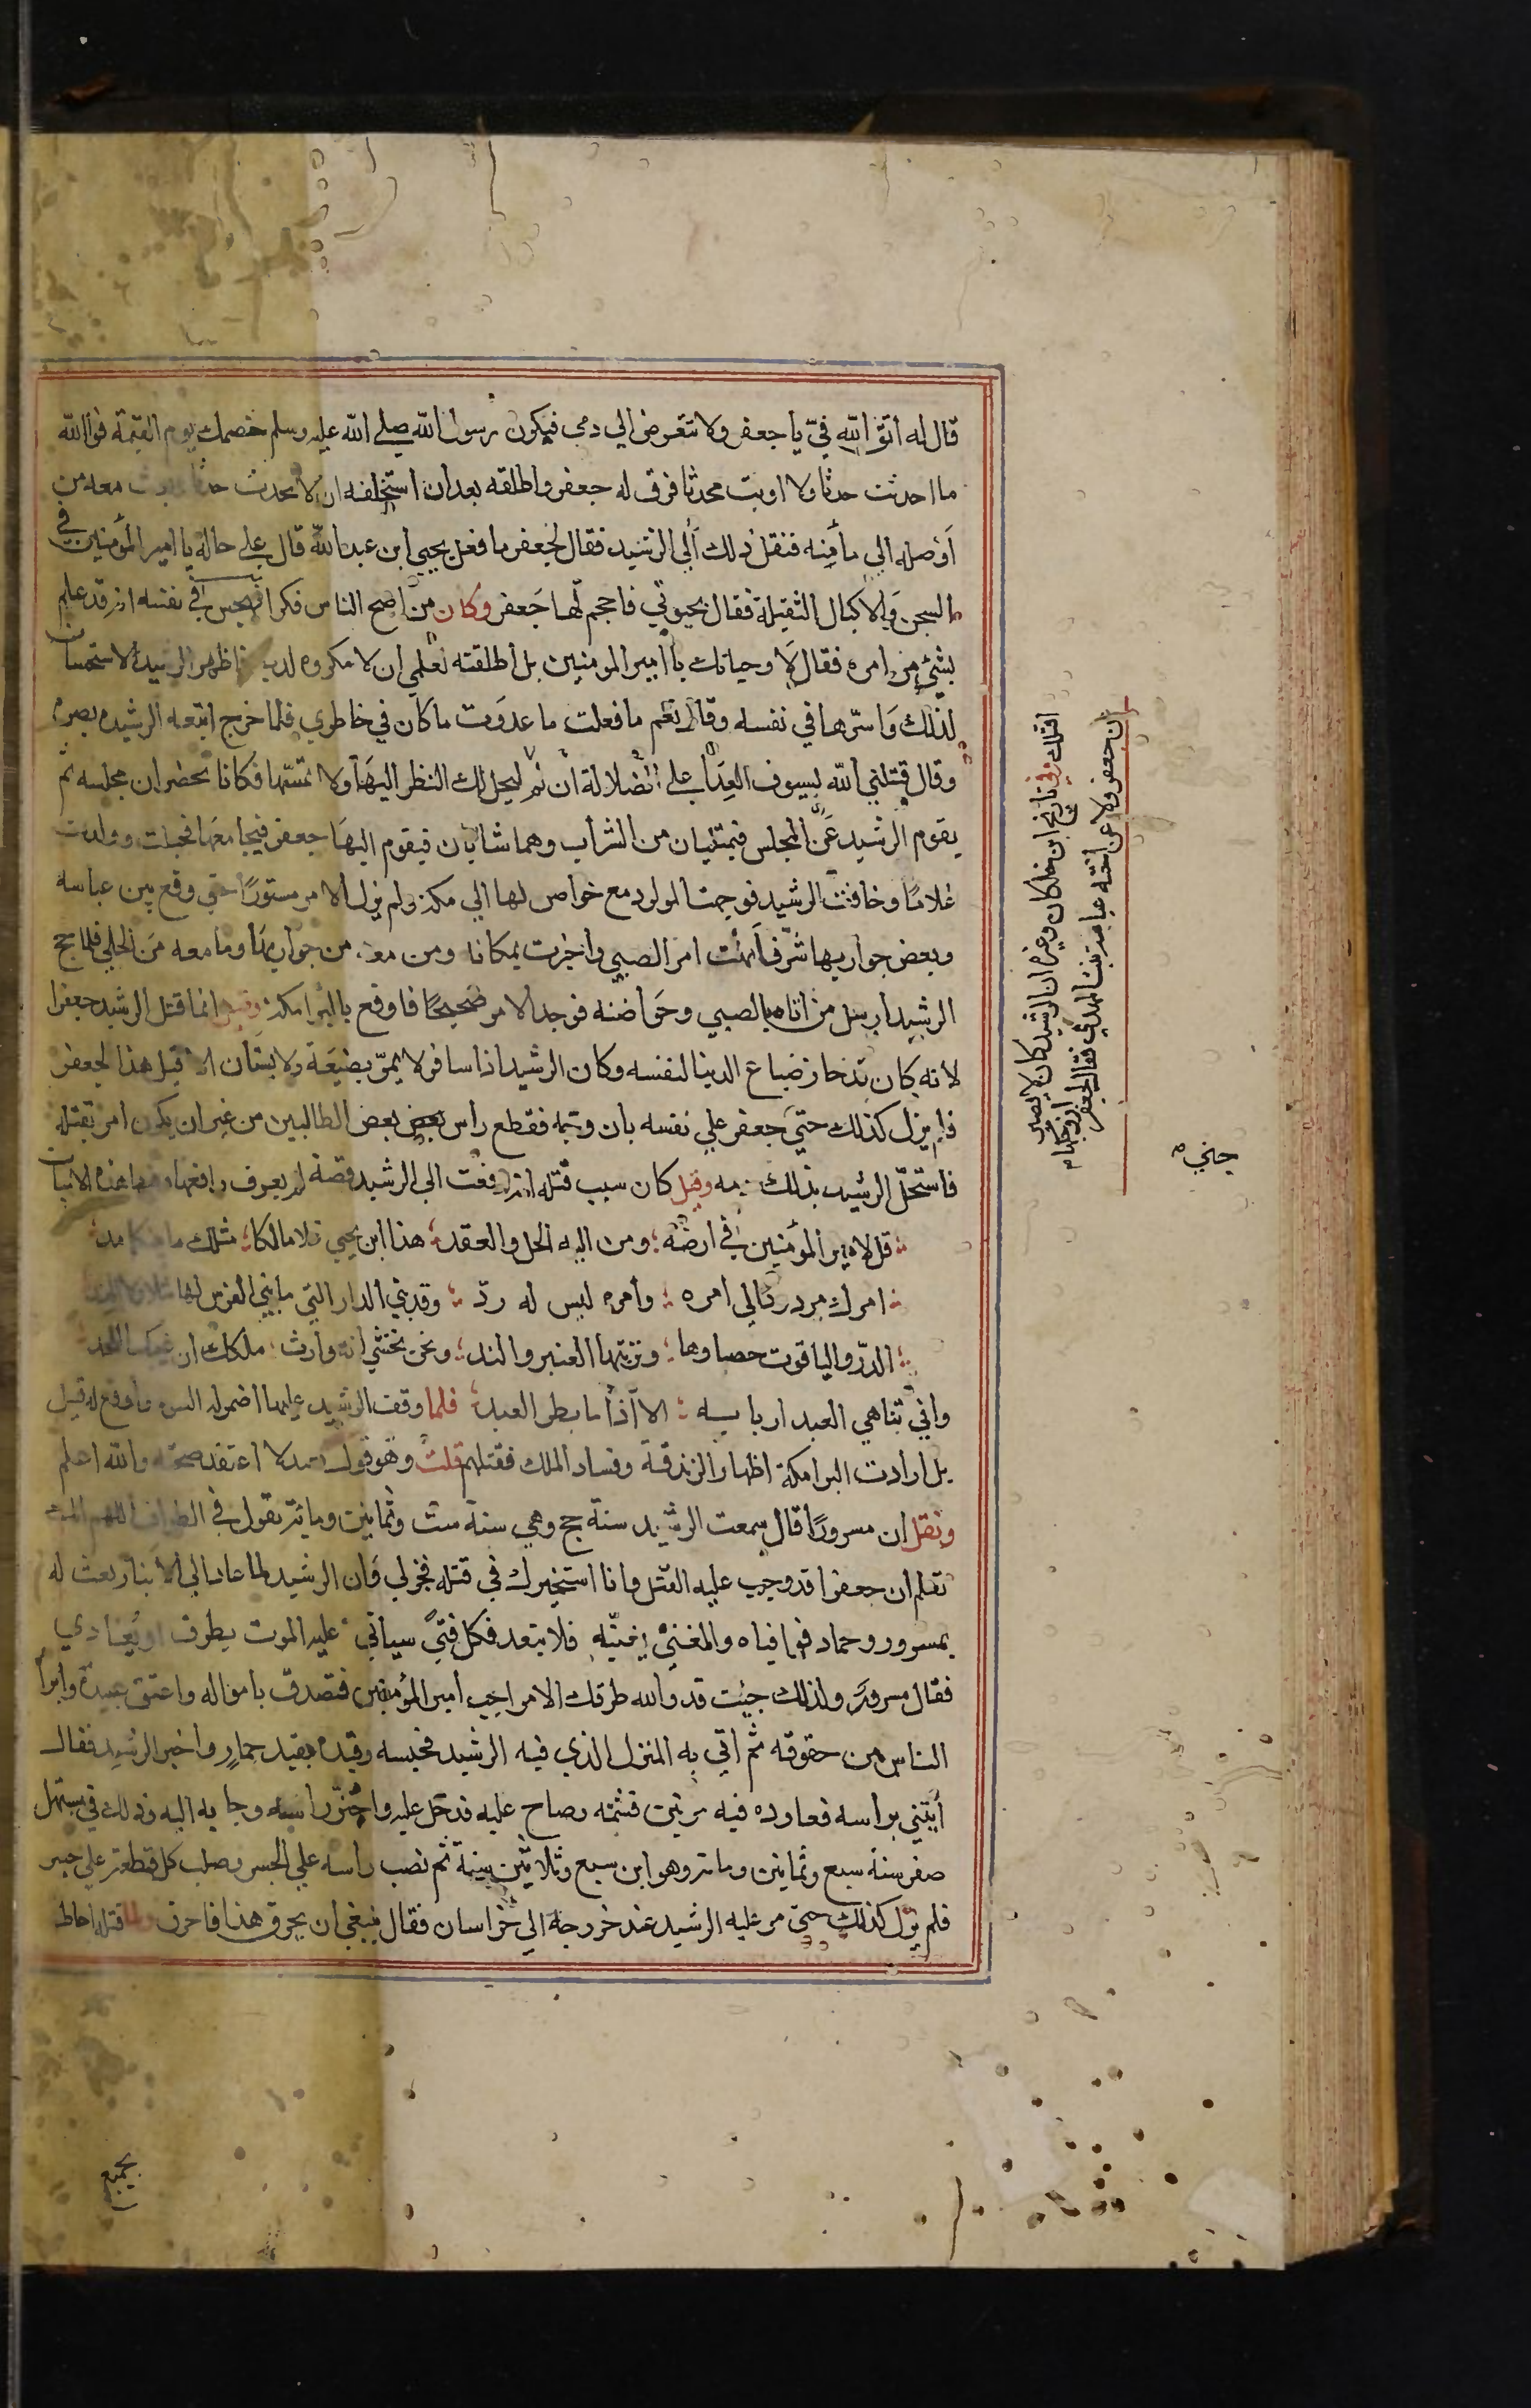 قال له اتق الله في يا جعفر ولا تتعرض الي دمي فيكون رسول الله صلي الله عليه وسلم خصمك يوم القيمة فوالله
ما احدثت حدثا ولا اويت محدثا فرق له جعفر واطلقه بعد ان استحلفه ان لا يحدث حدثا وبعث معه من
اوصله الي مأمنه فنقل ذلك الي الرشيد فقال لجعفر ما فعل يحيي ابن عبد الله قال علي حاله يا امير المؤمنين في
السجن والاكبال الثقيلة فقال بحيوتي فاحجم لها جعفر وكان من اصح الناس فكرا فهجس في نفسه انه قد علم
بشئ من امره فقال لا وحياتك يا امير المومنين بل اطلقته لعلمي ان لا مكروه لديه فاظهر الرشيد الاستحسان
لذلك واسرها في نفسه وقال نعم ما فعلت ما عدوت ما كان في خاطري فلما خرج اتبعه الرشيد بصره
وقال قتلني الله بسيوف العدا علي الضلالة ان لم
ليحل لك النظر اليها ولا تمسها فكانا يحضران مجلسه ثم
يقوم الرشيد عن المجلس فيمتليان من الشراب وهما شابان فيقوم اليها جعفر فيجامعها فحبلت وولدت
غلاما وخافت الرشيد فوجهت المولود مع خواص لها الي مكة ولم يزل الامر مستورا حتي وقع بين عباسه
وبعض جواريها شر فانهت امر الصبي واخبرت بمكانه ومن معه من جواريها وما معه من الحلي فلما حج
الرشيد ارسل من اتاه بالصبي وحواضنه فوجد الامر صحيحا فاوقع بالبرامكة وقيل انما قتل الرشيد جعفرا
لانه كان قد حاز ضياع الدنيا لنفسه وكان الرشيد اذا سافر لا يمر بضيعة ولا بستان الا قيل هذا لجعفر
فلم يزل كذلك حتي جني جعفر علي نفسه بان وجه فقطع راس بعض الطالبين من غير ان يكون امر بقتله
فاستحل الرشيد بذلك دمه وقيل كان سبب قتله انه رفعت الي الرشيد قصة لم يعرف رافعها وفيها هذه الابيات
قل لامير المؤمنين في ارضه ومن اليه الحل والعقد هذا ابن يحيي قد غدا مالكا مثلك ما بينكما حد
امرك مردود الي امره وامره ليس له رد وقد بني الدار التي ما بني الفرس لها مثلا ولا الهند
الدر والياقوت حصباوها وتربتها العنبر والند ونحن نخشي انه وارث ملكك ان غيبك اللحد
ولن تباهي العبد اربابه الا اذا ما بطر العبد فلما وقف الرشيد عليها اضمر له السوء واوقع به قيل
بل ارادت البرامكة اظهار الزندقة وفساد الملك فقتلهم قلت وهو قول بعيد لا اعتقد صحته والله اعلم
ونقل ان مسرورا قال سمعت الرشيد سنة حج وهي سنة ست وثمانين ومائة يقول في الطواف اللهم انك
تعلم ان جعفرا قد وجب عليه القتل وانا استخيرك في قتله فخر لي وان الرشيد لما عاد الي الانبار بعث له
بمسرور وحماد فوافياه والمغني يغنيه فلا تبعد فكل فتي سياتي عليه الموت يطرق او يغادي
فقال مسرور ولذلك جئت قد والله طرقك الامر اجب امير المؤمنين فتصدق بامواله واعتق عبيده وابرا
الناس من حقوقه ثم اتي به المنزل الذي فيه الرشيد فحبسه وقيده بقيد حمار واخبر الرشيد فقال
أتيني براسه فعاوده فيه مرتين فشتمه وصاح عليه فدخل عليه واحتز راسه وجا به اليه وذلك في مستهل
صفر سنة سبع وثمانين ومائة وهو ابن سبع وثلاثين سنة ثم نصب راسه علي الجسر وصلب كل قطعة علي جسر
فلم يزل كذلك حتي مر عليه الرشيد عند خروجه الي خراسان فقال ينبغي ان يحرق هذا فاحرق ولما قتله احاط
بجميع
اقتلك وفي تاريخ ابن خلكان وغيره ان الرشيد كان لا يصبر
عن جعفر ولا عن اخته عباسة بنت المهدي فقال لجعفر ازوجكها
جني